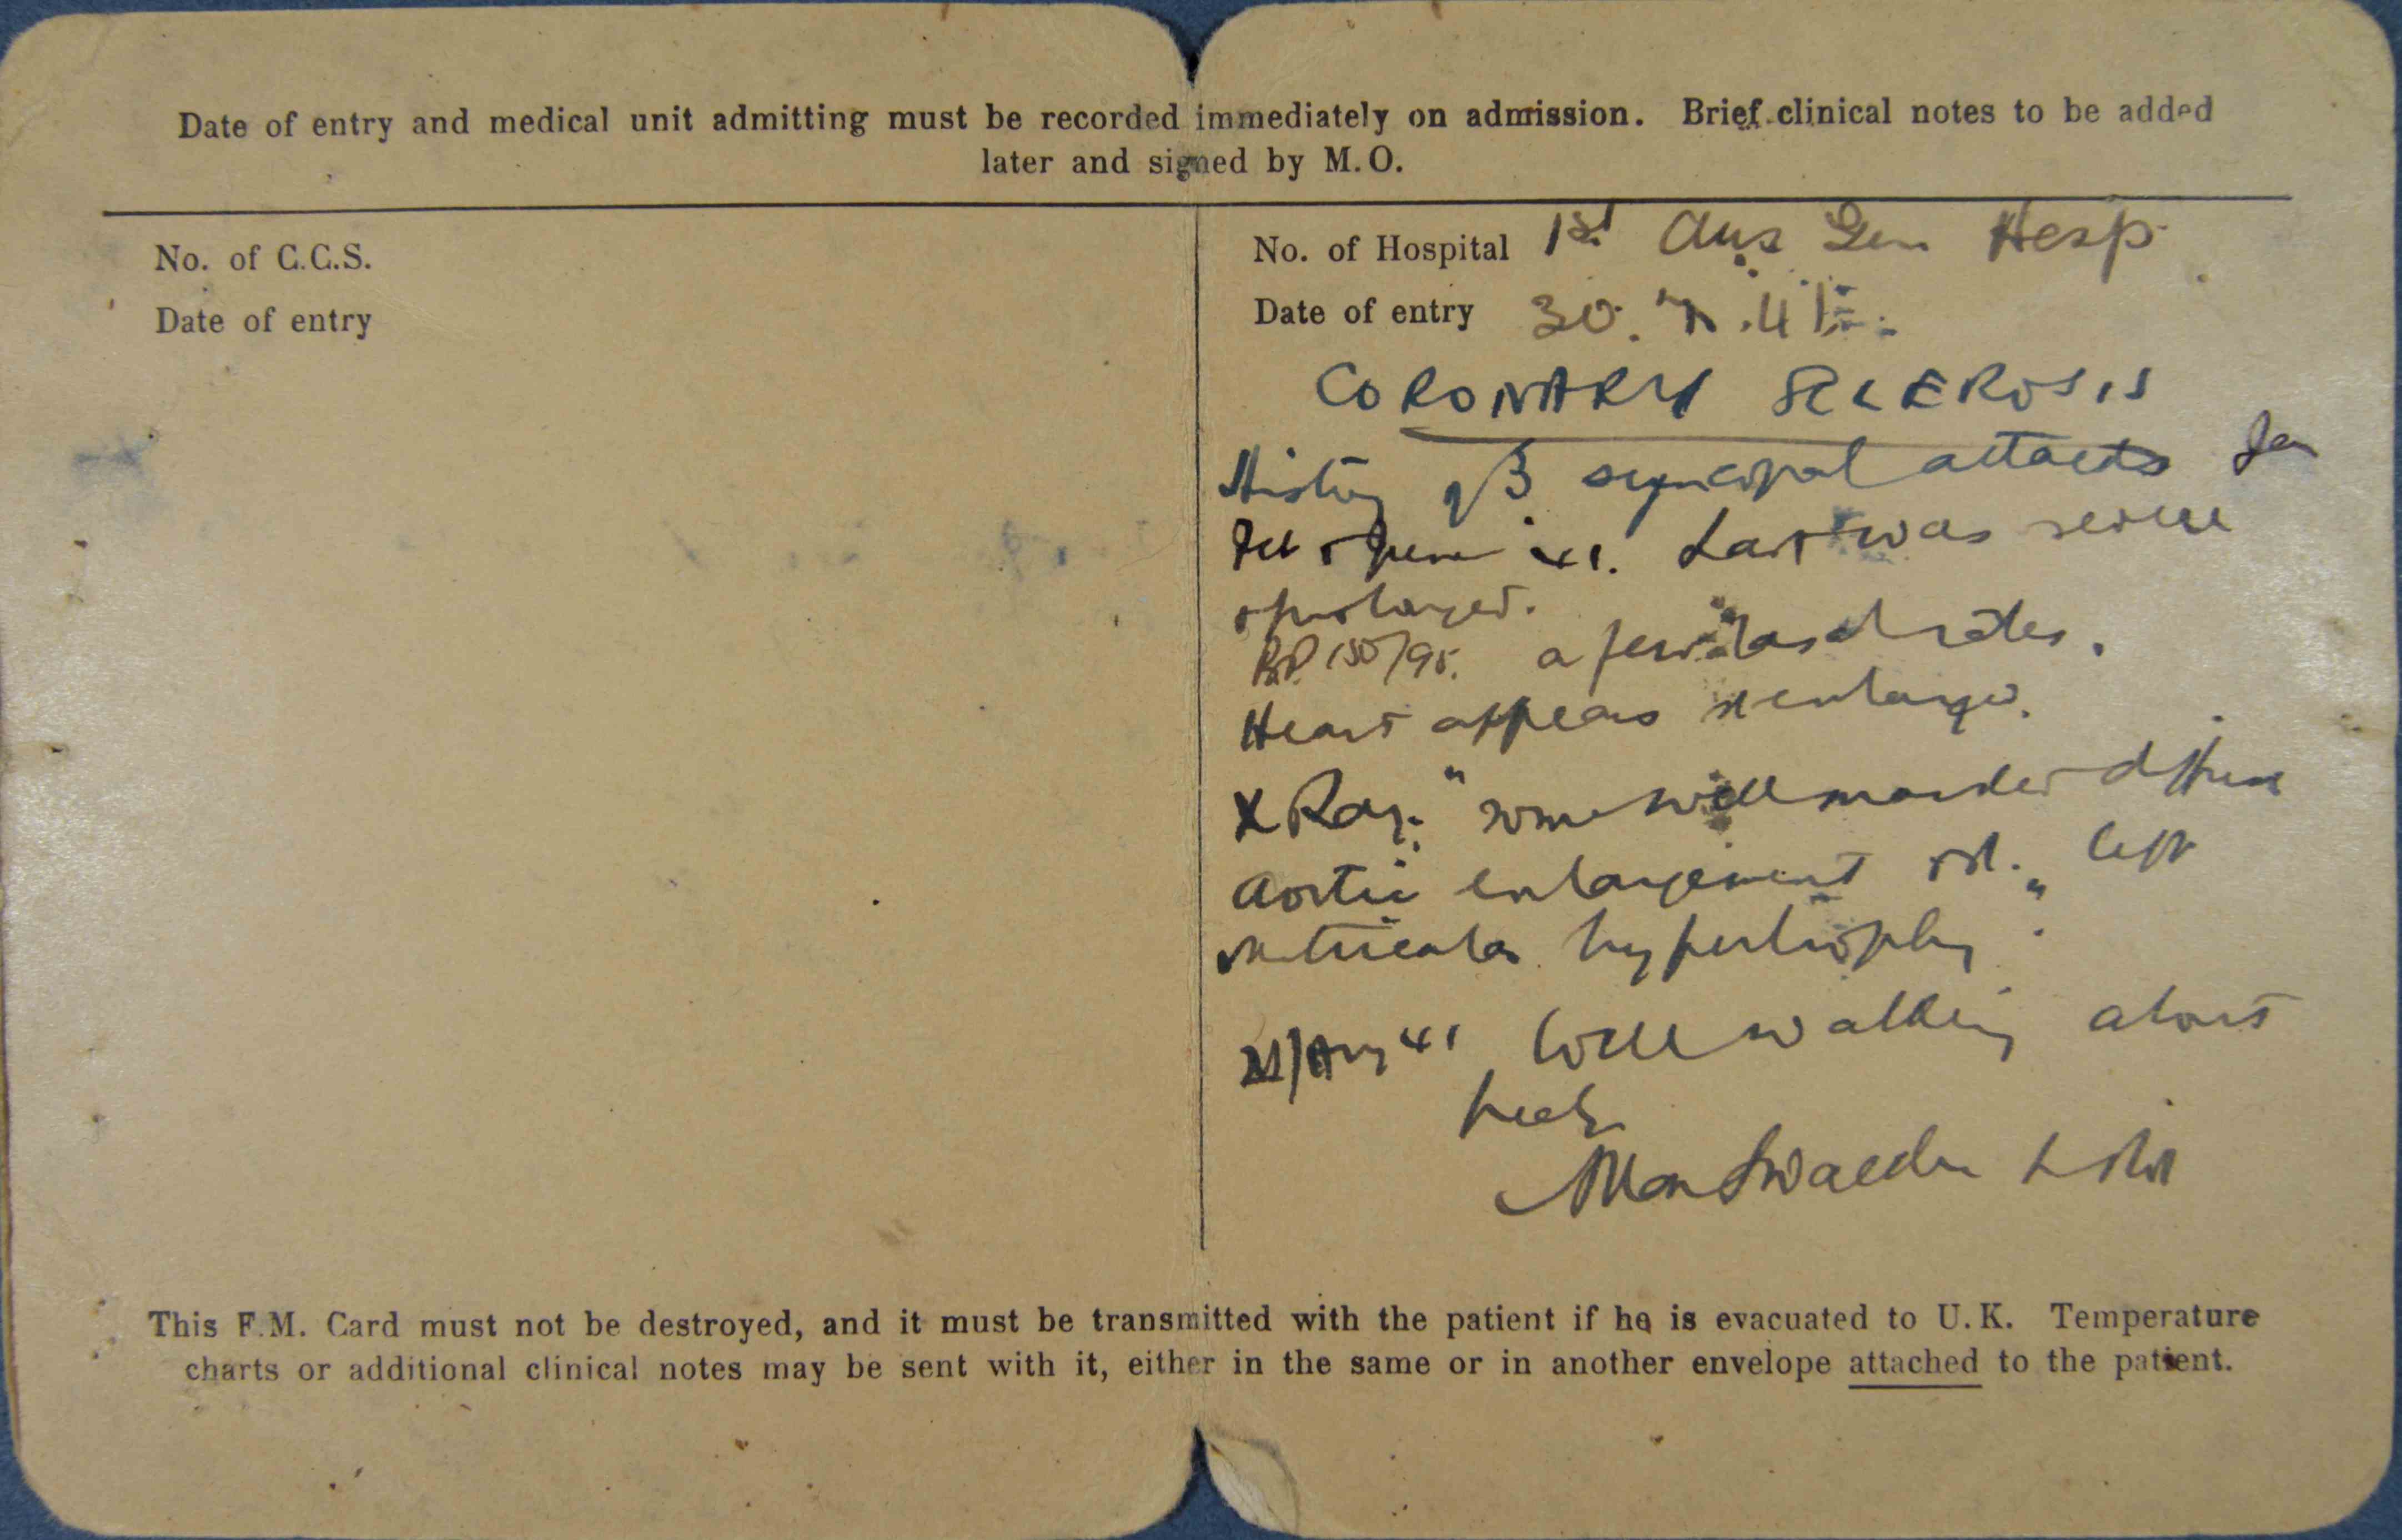 Date of entry and medical unit admitting must be recorded immediately on admission. Brief clinical notes to be added
later and signed by M.O.
No. of C.C.S.
Date of entry
No. of Hospital 1st Aus Gen Hosp
Date of entry 30.7.41
CORONARY SCLEROSIS
History of 3 syncopal attacks Jan
Feb & June 41. Last was severe
& prolonged.
BP. 150/95. a few basal rales.
Heart appears enlarged.
X Ray. "some well marked diffuse
Aortic enlargement left
ventricular hypertrophy".
Aug 41 Well walking about
freely
This F.M. Card must not be destroyed, and it must be transmitted with the patient if he is evacuated to U.K. Temperature
charts or additional clinical notes may be sent with it, either in the same or in another envelope attached to the patient.